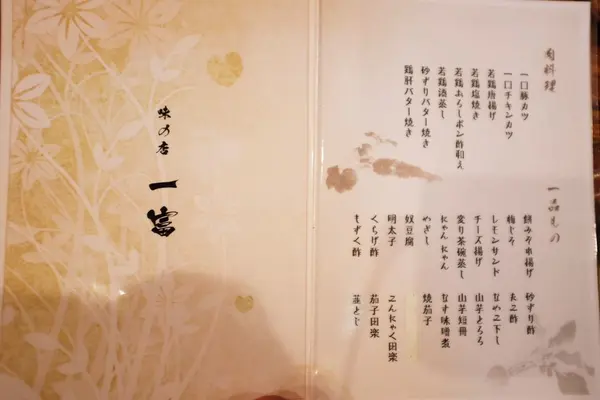 味の店 一富
肉料理
一口豚カツ
一口チキンカツ
若鶏唐揚げ
若鶏塩焼き
若鶏おろしポン酢和え
若鶏酒蒸し
砂ずりバター焼き
鶏肝バター焼き
一品もの
餅みぞれ揚げ
梅じそ
レモンサンド
チーズ揚げ
変り茶碗蒸し
にゃんにゃん
めざし
奴豆腐
明太子
くらげ酢
もずく酢
砂ずり酢
たこ酢
なめこ下し
山芋とろろ
山芋短冊
なす味噌煮
焼茄子
こんにゃく田楽
茄子田楽
韮とじ